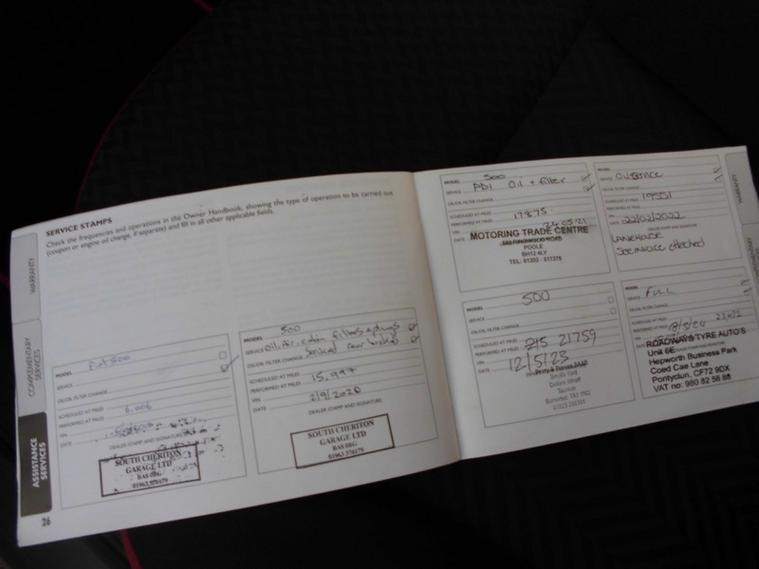 SERVICE STAMPS
Check the frequencies and operations in the Owner Handbook, showing the type of operation to be carried out
(coupon or engine oil change, if separate) and fill in all other applicable fields.
WARRANTY
COMPLEMENTARY
SERVICES
ASSISTANCE
SERVICES
MODEL Fiat 500
SERVICE
OIL/OIL FILTER CHANGE
SCHEDULED AT MILES
PERFORMED AT MILES 6,006
VIN
DATE
DEALER STAMP AND SIGNATURE
SOUTH CHERITON
GARAGE LTD
BA8 0BG
01963 370179
26
MODEL 500
SERVICE oil, air, cabin filters, plugs
OIL/OIL FILTER CHANGE rear brakes
SCHEDULED AT MILES
PERFORMED AT MILES 15,997
VIN
DATE 2/9/2020
DEALER STAMP AND SIGNATURE
SOUTH CHERITON
GARAGE LTD
BA8 0BG
01963 370179
MODEL 500
SERVICE PDI Oil + filter
OIL/OIL FILTER CHANGE
SCHEDULED AT MILES
PERFORMED AT MILES 17875
VIN
DATE 24.05.21
MOTORING TRADE CENTRE
POOLE
BH12 4LY
TEL: 01202 - 017375
MODEL
SERVICE
OIL/OIL FILTER CHANGE
SCHEDULED AT MILES 19551
PERFORMED AT MILES
VIN
DATE 22/02/2022
DEALER STAMP AND SIGNATURE
LANEHOUSE
See invoice attached
WARRANTY
MODEL 500
SERVICE
OIL/OIL FILTER CHANGE
SCHEDULED AT MILES
PERFORMED AT MILES 21759
VIN
DATE 12/5/23
Taunton
MODEL
SERVICE FULL
OIL/OIL FILTER CHANGE
SCHEDULED AT MILES
PERFORMED AT MILES
VIN
DATE
ROADWAYS TYRE AUTO'S
Unit 6E
Hepworth Business Park
Coed Cae Lane
Pontyclun, CF72 9DX
VAT no: 980 82 56 88